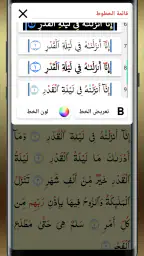 قائمة الخطوط
إِنَّآ أَنزَلْنَٰهُ فِى لَيْلَةِ ٱلْقَدْرِ ١
إِنَّآ أَنزَلْنَٰهُ فِى لَيْلَةِ ٱلْقَدْرِ ١
7
إِنَّآ أَنزَلْنَٰهُ فِى لَيْلَةِ ٱلْقَدْرِ ١
8
إِنَّآ أَنزَلْنَٰهُ فِى لَيْلَةِ ٱلْقَدْرِ ١
9
لون الخط
تعريض الخط B
إِنَّآ أَنزَلْنَٰهُ فِى لَيْلَةِ ٱلْقَدْرِ ١ وَمَآ
أَدْرَىٰكَ مَا لَيْلَةُ ٱلْقَدْرِ ٢ لَيْلَةُ
ٱلْقَدْرِ خَيْرٌ مِّنْ أَلْفِ شَهْرٍ ٣ تَنَزَّلُ
ٱلْمَلَٰٓئِكَةُ وَٱلرُّوحُ فِيهَا بِإِذْنِ رَبِّهِم مِّن
كُلِّ أَمْرٍ ٤ سَلَٰمٌ هِىَ حَتَّىٰ مَطْلَعِ
ٱلْفَجْرِ ٥